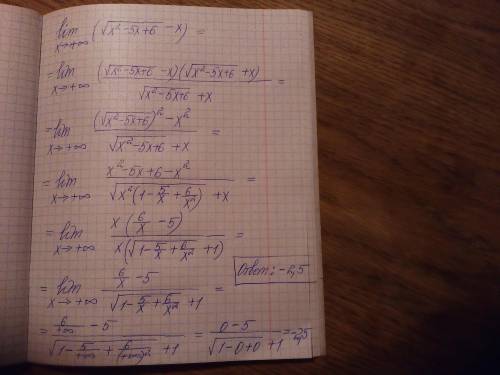 lim x→+∞ (√(x²-5x+6) - x) =
= lim x→+∞ ((√(x²-5x+6) - x)(√(x²-5x+6) + x)) / (√(x²-5x+6) + x) =
= lim x→+∞ ((√(x²-5x+6))² - x²) / (√(x²-5x+6) + x) =
= lim x→+∞ (x²-5x+6-x²) / (√(x²(1-5/x+6/x²)) + x) =
= lim x→+∞ (x(6/x - 5)) / (x(√(1-5/x+6/x²) + 1)) =
= lim x→+∞ (6/x - 5) / (√(1-5/x+6/x²) + 1) =
Ответ: -2,5
= (6/+∞ - 5) / (√(1-5/+∞+6/(+∞)²) + 1) = (0-5) / (√(1-0+0) + 1) = -2,5